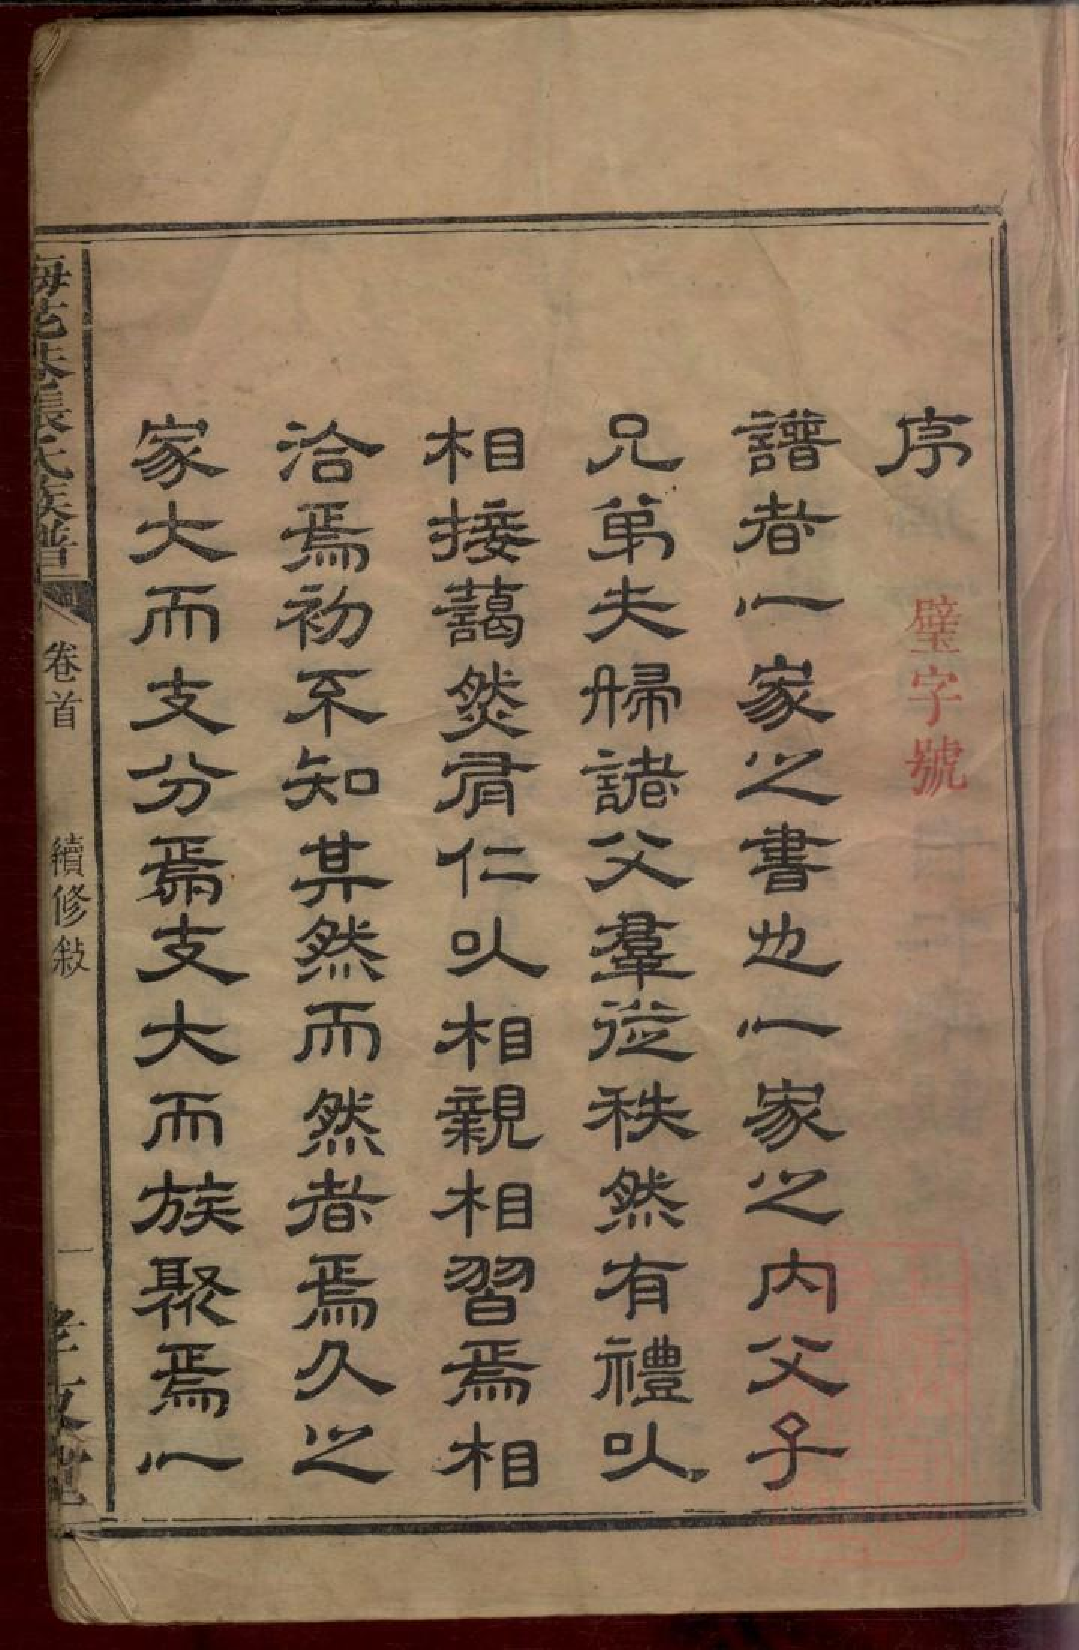 序
璧字號
譜者一家之書也一家之內父子
兄弟夫婦諸父羣從秩然有禮以
相接藹然有仁以相親相習焉相
洽焉初不知其然而然者焉久之
家大而支分焉支大而族聚焉一
梅花巷張氏族譜
卷首
續修敘
一
孝友堂